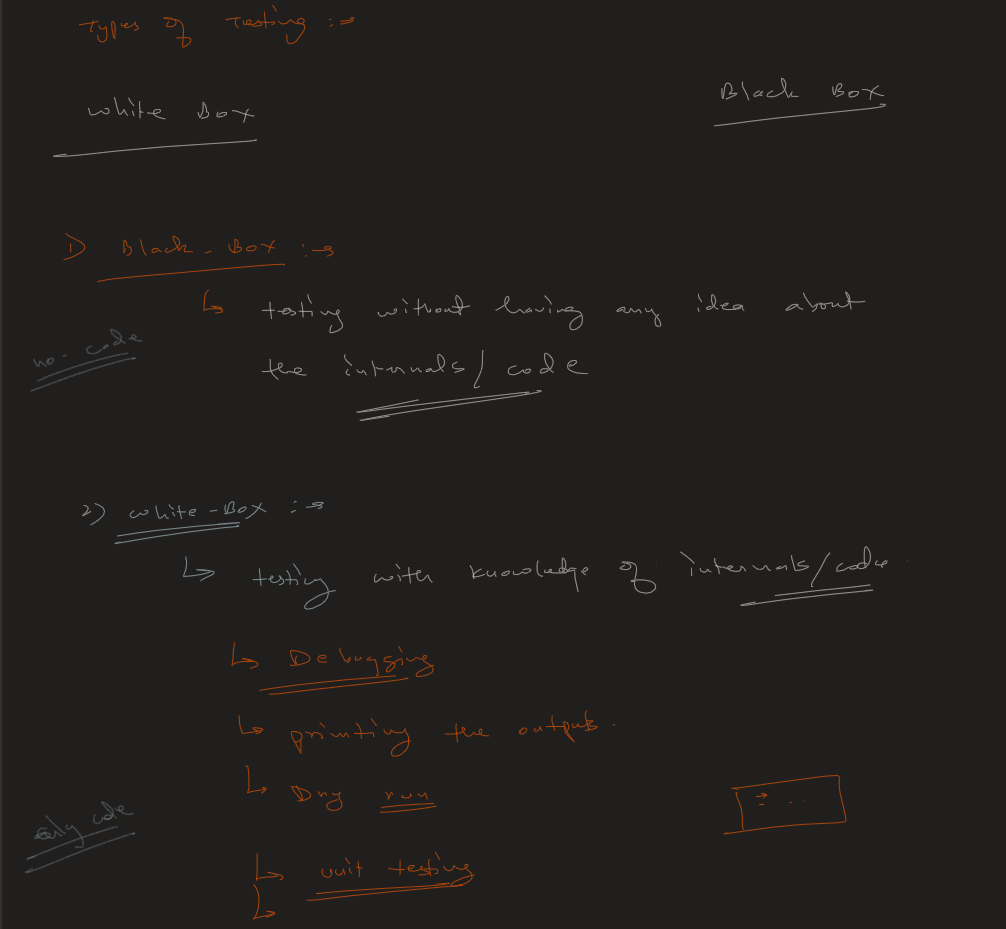 Types of Testing :→
White Box
Black Box
1) Black-Box :→
↳ testing without having any idea about
the internals/code
no-code
2) White-Box :→
↳ testing with knowledge of internals/code.
↳ Debugging
↳ printing the outputs.
↳ Dry run
only code
↳ unit testing
↳